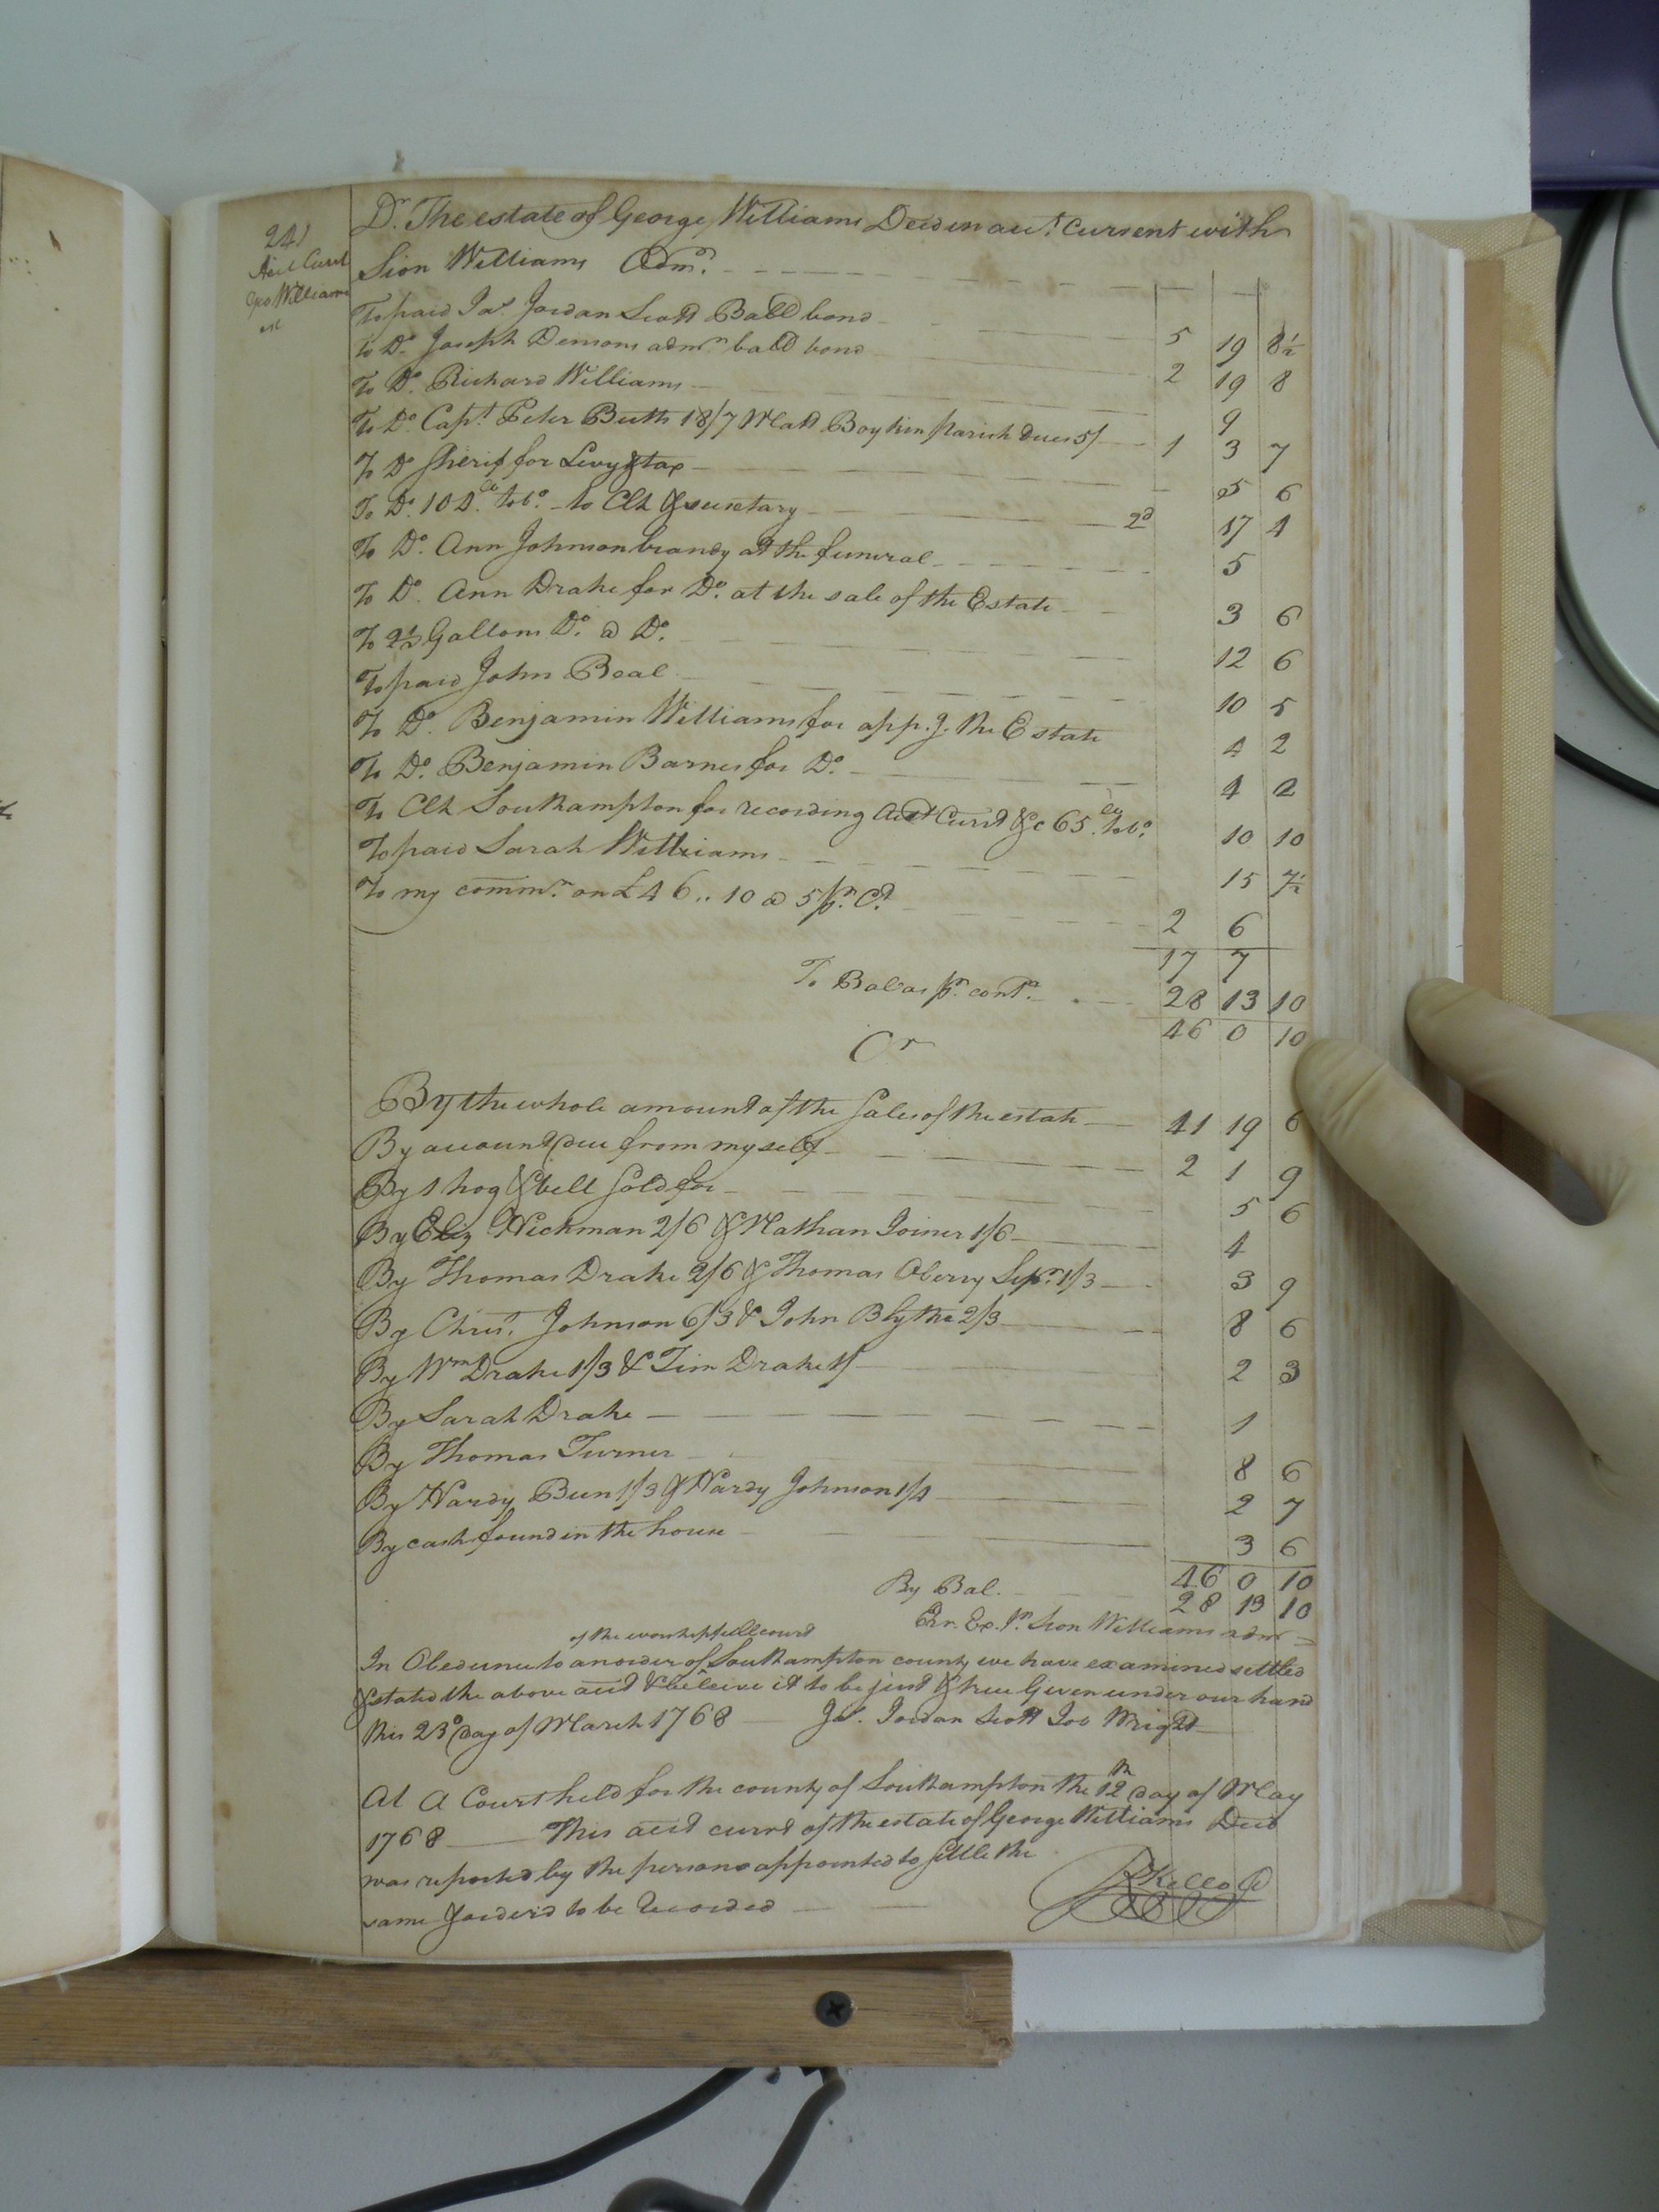 241
Acct Currt
Geo Williams
est
Dr. The estate of George Williams Decd in acct. Current with
Sion Williams Admr.
To paid Jas. Jordan Scott Ball bond 5 19 8½
To Do. Joseph Demons admrn ball bond 2 19 8
To Do. Richard Williams 9
To Do. Capt. Peter Butts 18/7 Matt Boykin parish dues 5/ 1 3 7
To Do Sherif for Levy & tax 5 6
To Do. 10 D. tobo. to Clk & secretary 2d 17 4
To Do. Ann Johnson brandy at the funeral 5
To Do. Ann Drake for Do. at the sale of the Estate 3 6
To 2½ Gallons Do. @ Do. 12 6
To paid John Beal 10 5
To Do. Benjamin Williams for app.g. the Estate 4 2
To Do. Benjamin Barnes for Do. 4 2
To Clk Southampton for recording acct Currt &c 65 tobo. 10 10
To paid Sarah Williams 15 7½
To my commn. on £46..10 @ 5 pr. Ct 2 6
17 7
To Bal as pr. contra 28 13 10
46 0 10
Cr
By the whole amount of the Sales of the estate 41 19 6
By account due from my self 2 1 9
By 1 hog & bell Sold for 5 6
By Eliz Hickman 2/6 & Nathan Joiner 1/6 4
By Thomas Drake 2/6 & Thomas Oberry Senr. 1/3 3 9
By Christ. Johnson 6/3 & John Blythe 2/3 8 6
By Wm Drake 1/3 & Tim Drake 1/ 2 3
By Sarah Drake 1
By Thomas Turner 8 6
By Hardy Bun 1/3 & Hardy Johnson 1/4 2 7
By cash found in the house 3 6
46 0 10
By Bal. 28 13 10
Err. Ex. pr. Sion Williams admr
of the worshipfull court
In Obedience to an order of Southampton county we have examined settled
& stated the above acct & beleive it to be just & true Given under our hand
this 23d day of March 1768 Js. Jordan Scott Job Wright
At A Court held for the county of Southampton the 12th day of May
1768 This acct currt of the estate of George Williams Decd
was reported by the persons appointed to settle the
same & orderd to be Recorded
R Kello C